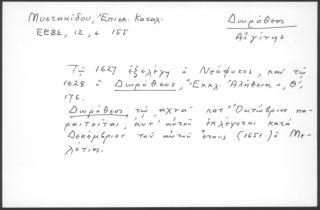 Μυστακίδου, Ἐπισκ. Κατάλ.
ΕΕΒΣ, 12, σ 155
Δωρόθεος
Αἰγίνης
Τῷ 1627 ἐξελέγη ὁ Νεόφυτος, καὶ τῷ
1628 ὁ Δωρόθεος, Ἐκκλ. Ἀλήθεια, Θ',
176.
Δωρόθεος τῷ αχνα' κατ' Ὀκτώβριον πα-
ραιτεῖται, ἀντ' αὐτοῦ ἐκλέγεται κατὰ
Δεκέμβριον τοῦ αὐτοῦ ἔτους (1651) ὁ Με-
λέτιος.